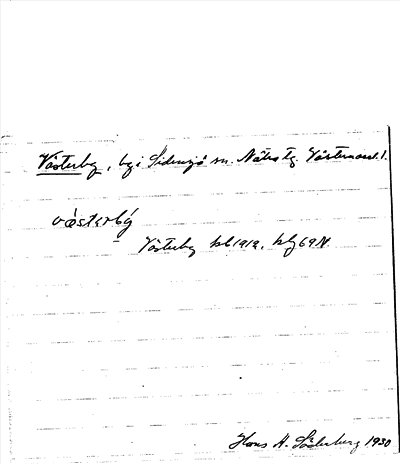 Västerby, by i Sidensjö sn. Nätra tg. Västernorrl. l.
västərbý
Västerby hl 1912, hlg 69 N.
Hans H. Söderberg 1930